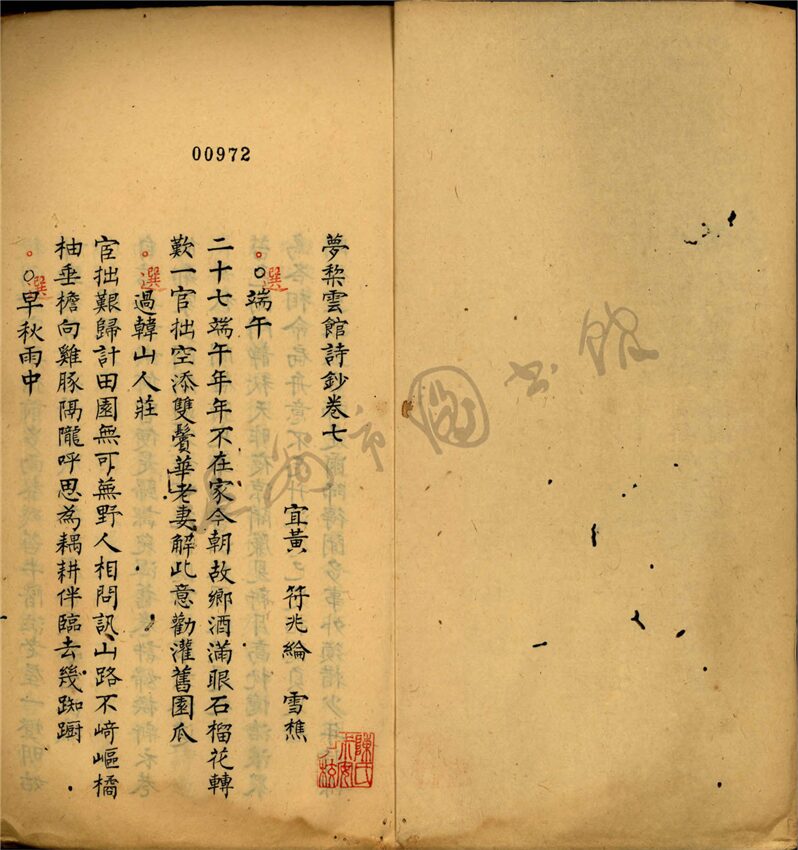 00972
夢棃雲館詩鈔卷七
宜黃 符兆綸 雪樵
選
端午
二十七端午年年不在家今朝故鄉酒滿眼石榴花轉
歎一官拙空添雙鬢華老妻解此意勸灌舊園瓜
選
過韓山人莊
宦拙艱歸計田園無可蕪野人相問訊山路不崎嶇橘
柚垂檐向雞豚隔隴呼思為耦耕伴臨去幾踟躕
選
早秋雨中
圖書館